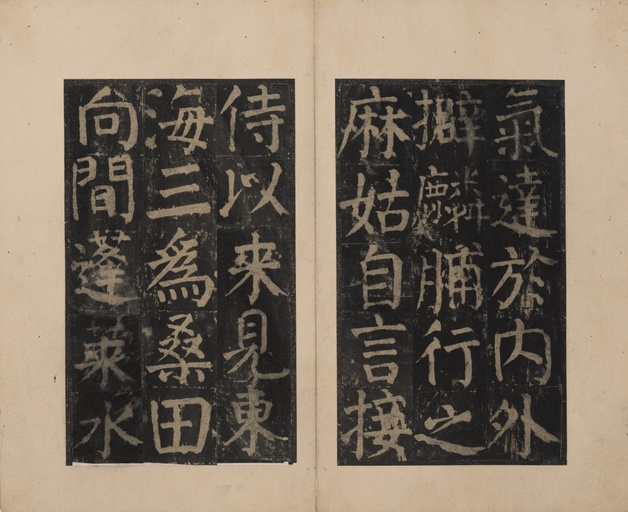 氣達於内外
擗麟脯行之
麻姑自言接
侍以来見東
海三爲桑田
向間蓬萊水